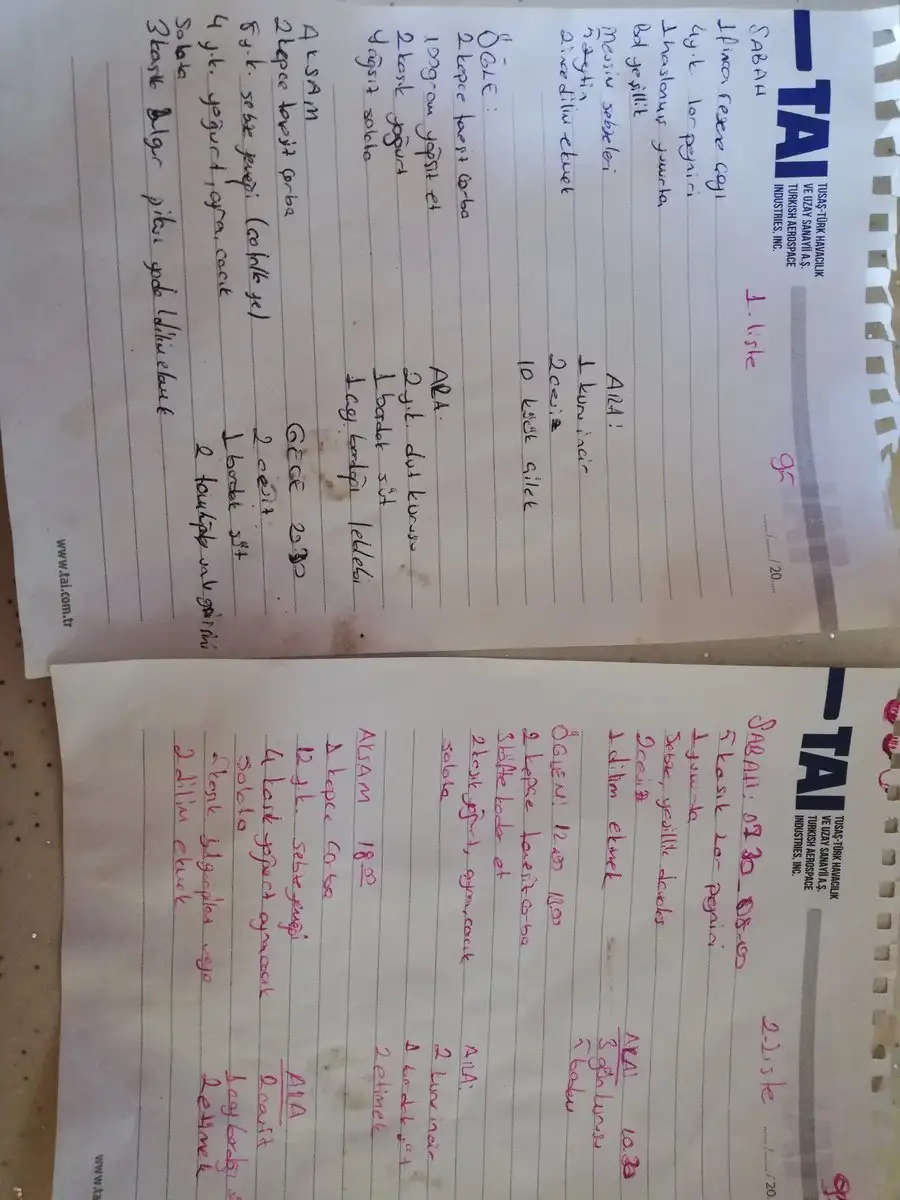 TAI
TUSAŞ-TÜRK HAVACILIK
VE UZAY SANAYİİ A.Ş.
TURKISH AEROSPACE
INDUSTRIES, INC.
..../..../20....
1. liste
SABAH
1 fincan rezene çayı
4 yk lor peyniri
1 haşlanmış yumurta
Bol yeşillik
Mevsim sebzeleri
zeytin
2 ince dilim ekmek
ARA:
1 kuru incir
2 ceviz
10 küçük çilek
ÖĞLE:
2 kepçe tavsit çorba
100 gram yağsız et
2 kaşık yoğurt
Yağsız salata
ARA:
2 yk dut kurusu
1 bardak süt
1 çay bardağı leblebi
AKŞAM
2 kepçe tavsit çorba
8 yk. sebze yemeği
4 yk. yoğurt, ayra, cacık
Salata
3 kaşık bulgur pilavı yada 1 dilim ekmek
GECE 20:30
2 ceviz
1 bardak süt
2
www.tai.com.tr
TAI
TUSAŞ-TÜRK HAVACILIK
VE UZAY SANAYİİ A.Ş.
TURKISH AEROSPACE
INDUSTRIES, INC.
..../..../20
2-Liste
SABAH: 07 30 - 08.00
5 kaşık lor peyniri
1 yumurta
Sebze, yeşillik
2 ceviz
1 dilim ekmek
ARA: 10.30
3 gün kurusu
5 badem
ÖĞLEN: 12.00 13.00
2 kepçe tavsit çorba
3 köfte kadar et
2 kaşık yoğurt, ayran, cacık
salata
ARA:
2 kuru incir
1 bardak süt
2 etimek
AKŞAM 18.00
1 kepçe çorba
12 yk sebze yemeği
4 kaşık yoğurt ayran cacık
Salata
kaşık bulgur pilavı veya
2 dilim ekmek
ARA
2 ceviz
1 çay bardağı
2 etimek
www.ta